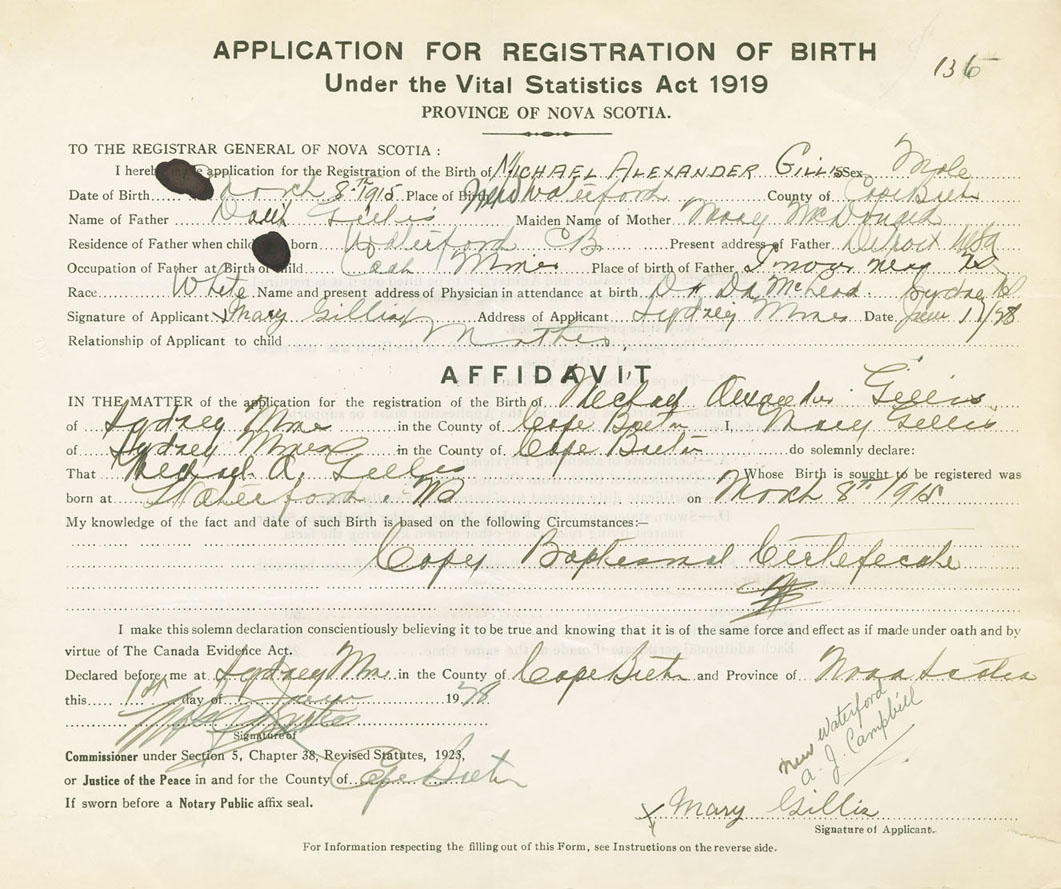 APPLICATION FOR REGISTRATION OF BIRTH
136
Under the Vital Statistics Act 1919
PROVINCE OF NOVA SCOTIA.
TO THE REGISTRAR GENERAL OF NOVA SCOTIA :
I hereb application for the Registration of the Birth of MICHAEL ALEXANDER GILLIS Sex Male
Date of Birth March 8th 1915 Place of Birth Waterford County of Cape Breton
Name of Father Gillis Maiden Name of Mother Mary McDonald
Residence of Father when child born Waterford CB Present address of Father Detroit USA
Occupation of Father at Birth of Child Coal Miner Place of birth of Father NS
Race White Name and present address of Physician in attendance at birth Dr McLeod Sydney
Signature of Applicant x Mary Gillis x Address of Applicant Sydney Mines Date June 1/28
Relationship of Applicant to child Mother.
AFFIDAVIT
IN THE MATTER of the application for the registration of the Birth of Michael Alexander Gillis
of Sydney Mines in the County of Cape Breton I, Mary Gillis
of Sydney Mines in the County of Cape Breton do solemnly declare:
That Michael A. Gillis Whose Birth is sought to be registered was
born at Waterford NS on March 8th 1915
My knowledge of the fact and date of such Birth is based on the following Circumstances:—
Copy Baptismal Certificate
I make this solemn declaration conscientiously believing it to be true and knowing that it is of the same force and effect as if made under oath and by
virtue of The Canada Evidence Act.
Declared before me at Sydney Mines in the County of Cape Breton and Province of Nova Scotia
this 1st day of June 1928
Signature of
New Waterford
A. J. Campbell
Commissioner under Section 5, Chapter 38, Revised Statutes, 1923,
or Justice of the Peace in and for the County of Cape Breton
If sworn before a Notary Public affix seal.
x Mary Gillis
Signature of Applicant.
For Information respecting the filling out of this Form, see Instructions on the reverse side.